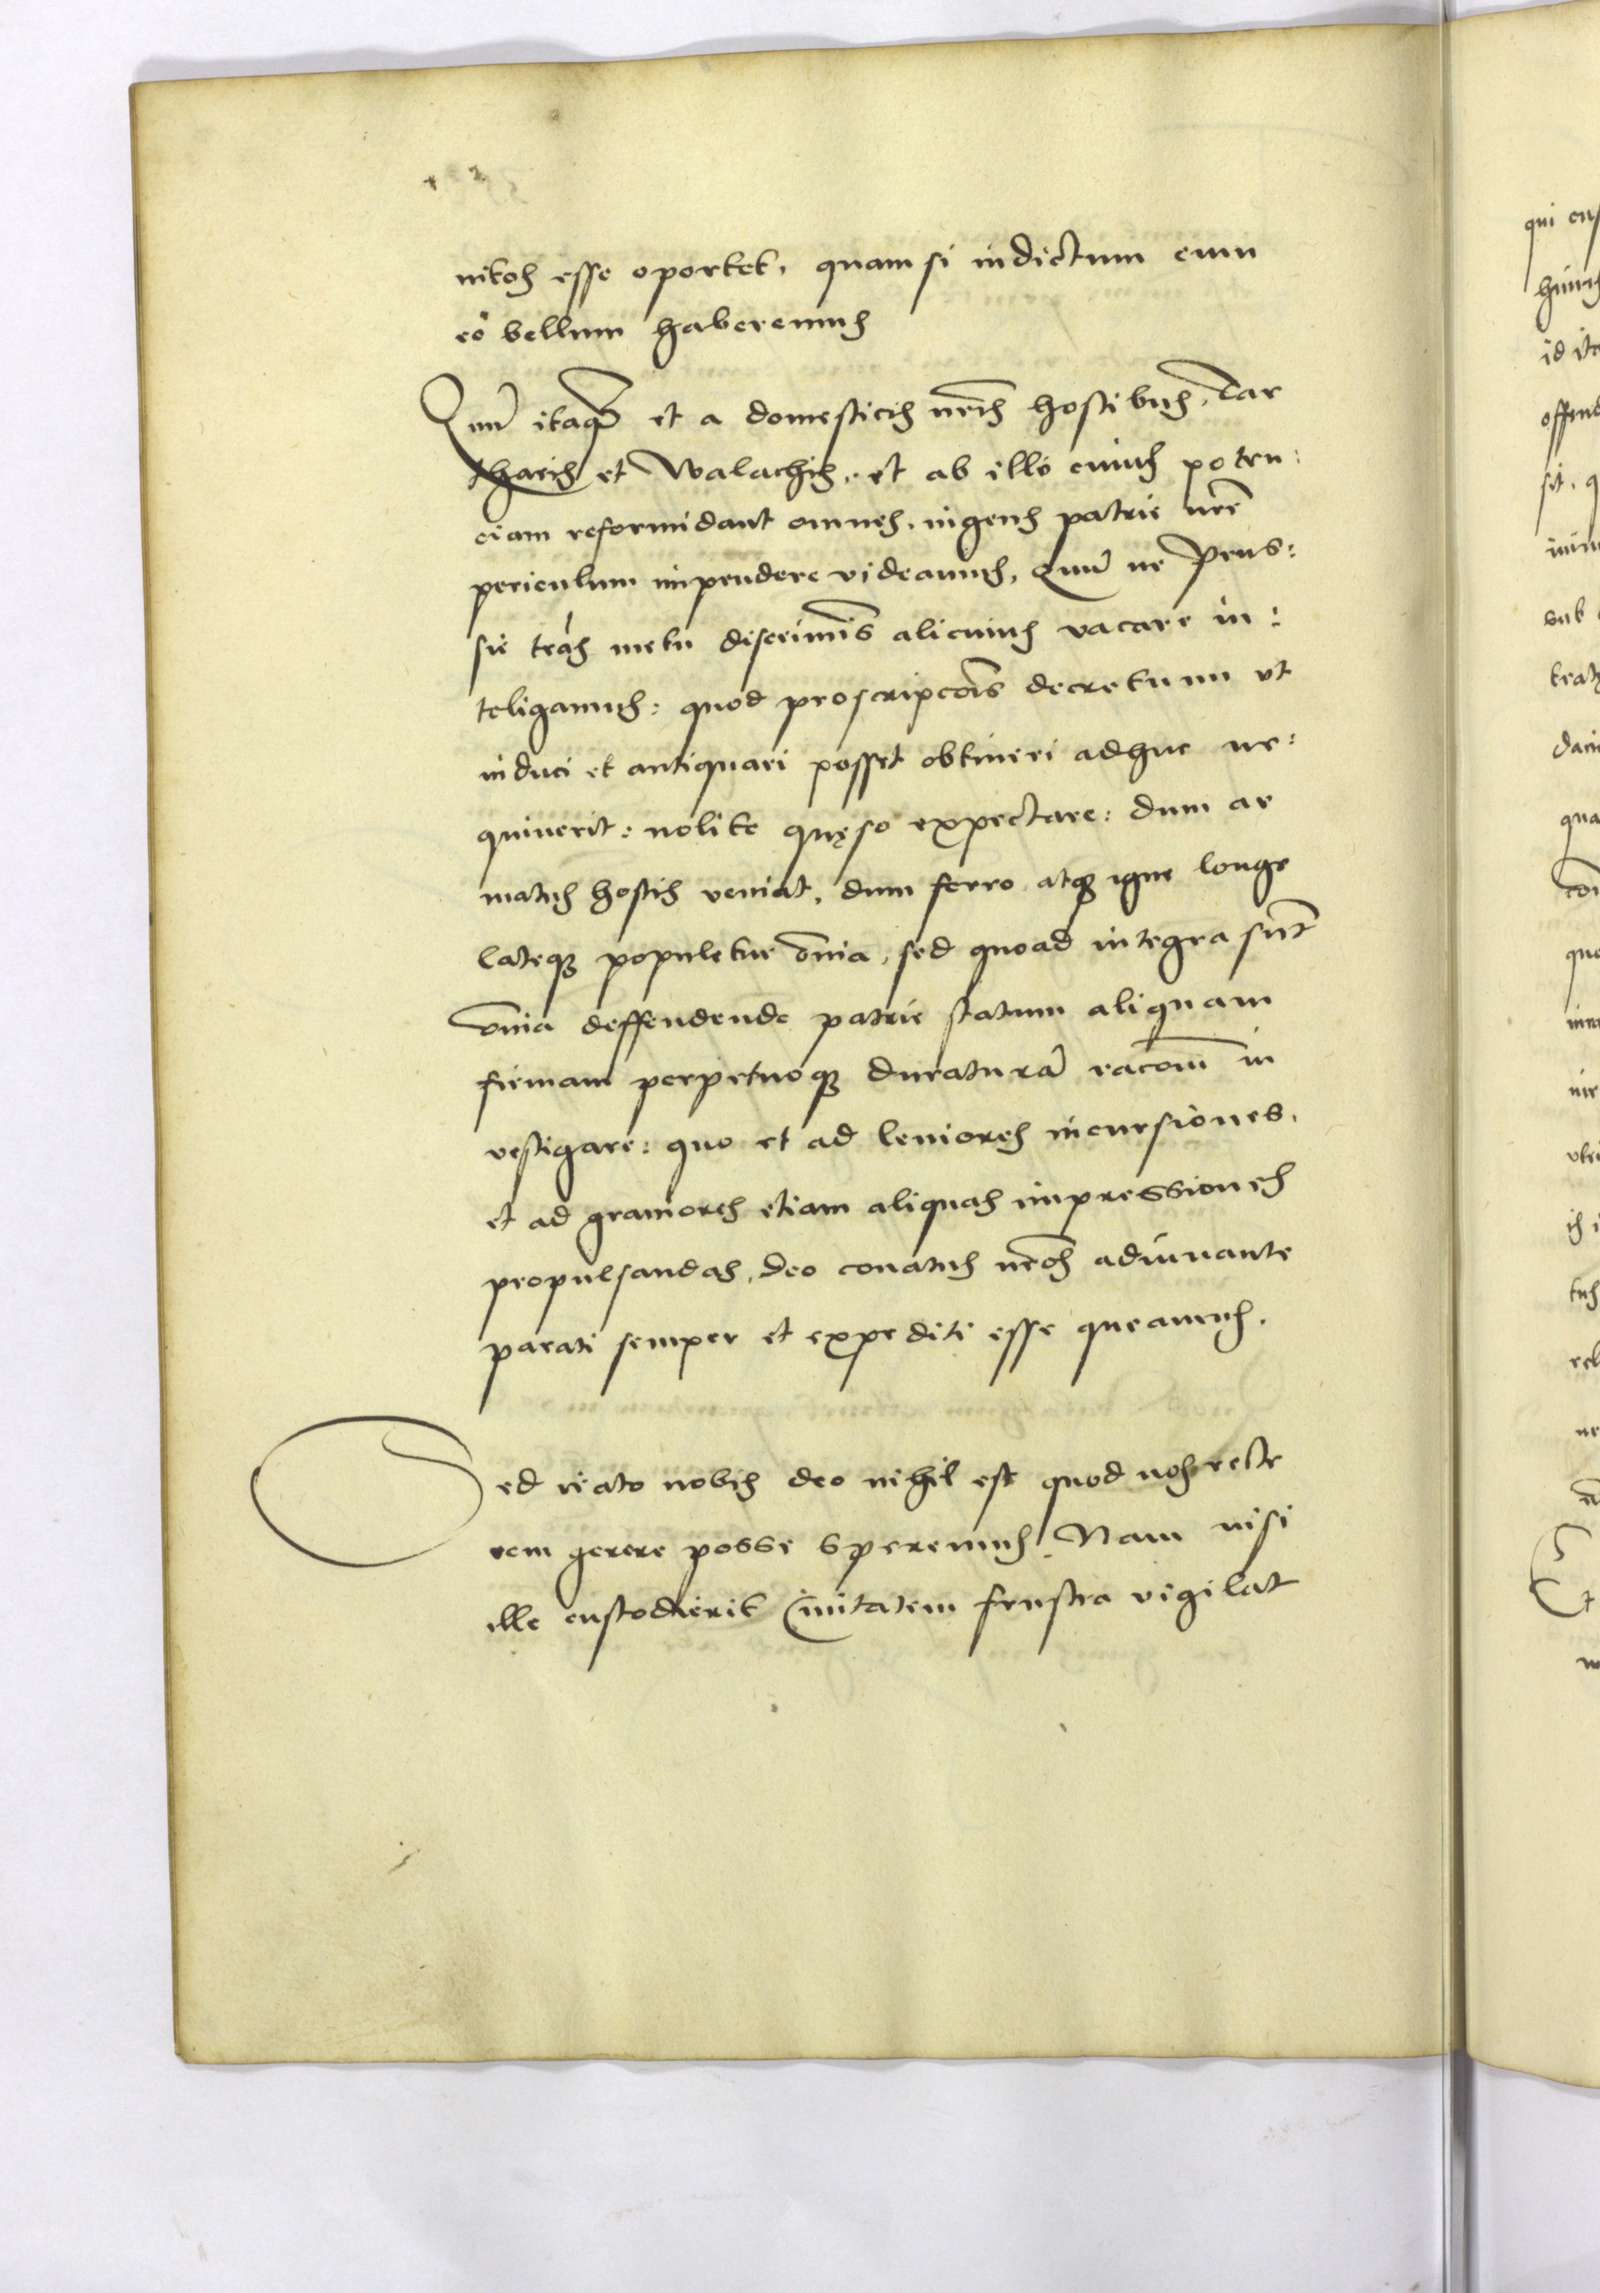 nitos esse oportet, quam si indictum cum
eo bellum haberemus
Quũ itaq₃ et a domesticis nr̃is hostibus, Tar
tharis et Walachis, et ab illo cuius poten:
ciam reformidant omnes, ingens patrie nr̃e
periculum impendere videamus, Quũ ne Prus:
sie terã̃s metu discrimĩs alicuius vacare in:
teligamus: quod proscripcõis decretum vt
induci et antiquari posset obtineri adhuc ne:
quiuerit: nolite quęso expectare: dum ar
matus hostis veniat, dum ferro atq₃ igne longe
lateq₃ populetur õnia, sed quoad integra sũt
õnia deffendende patrie statum aliquam
firmam perpetuoq₃ duraturã racõm in
vestigare: quo et ad leuiores incursiones,
et ad grauiores etiam aliquas impressiones
propulsandas, deo conatus nr̃os adiuuante
parati semper et expediti esse queamus.
Sed irato nobis deo nihil est quod nos recte
rem gerere posse speremus. Nam nisi
ille custodierit Ciuitatem frustra vigilat